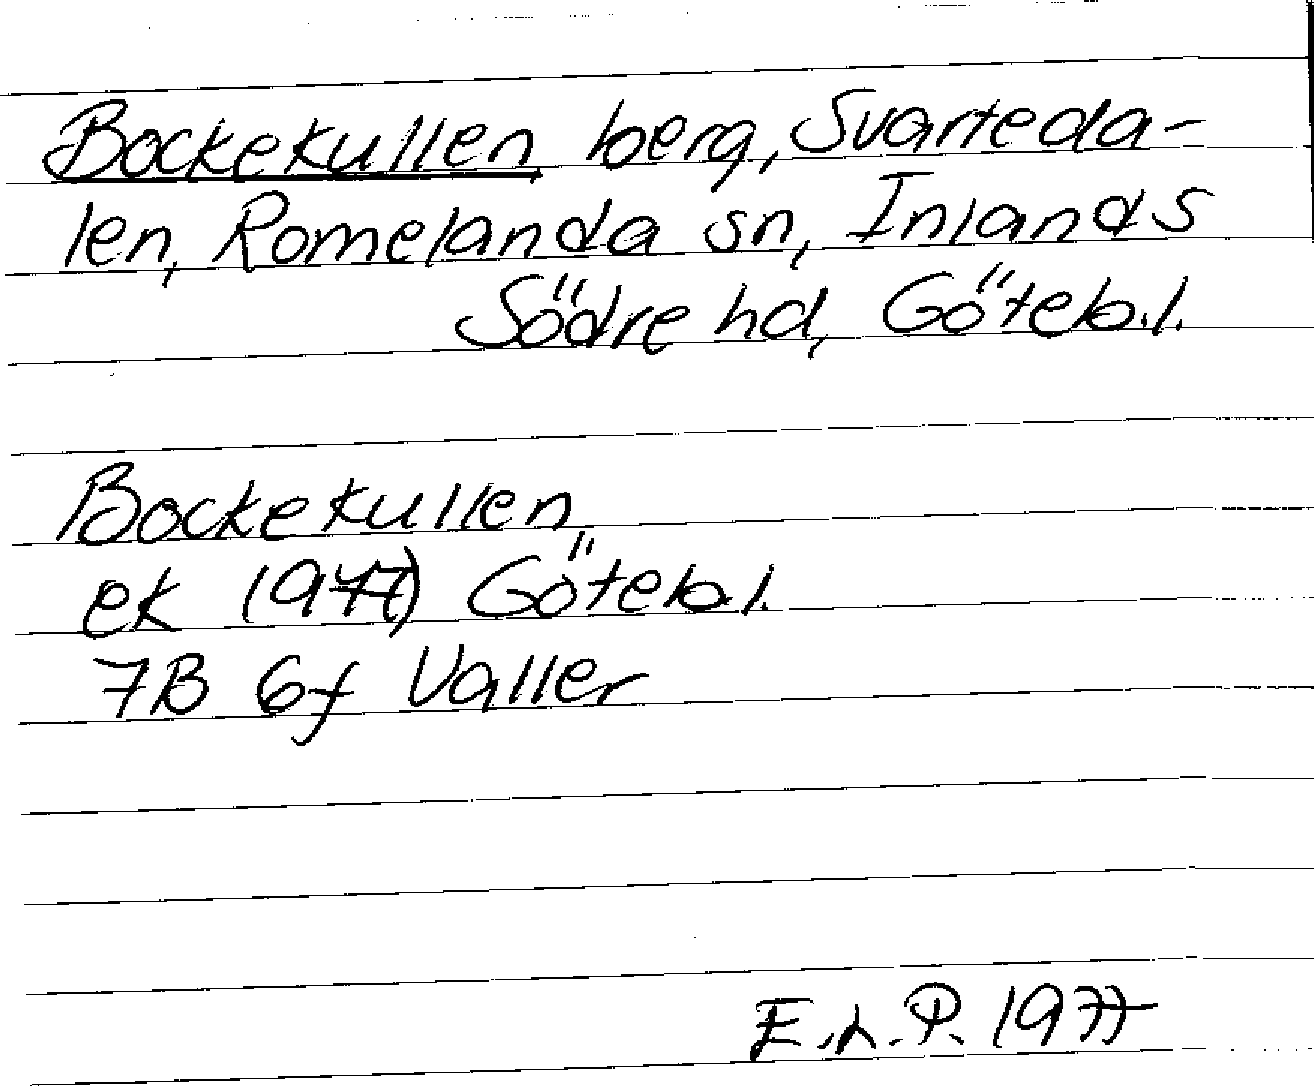 Bockekullen, berg, Svarteda-
len, Romelanda sn, Inlands
Södre hd, Göteb.l.
Bockekullen
ek (1977) Göteb.l.
7B 6f Valler
E.L.P. 1977